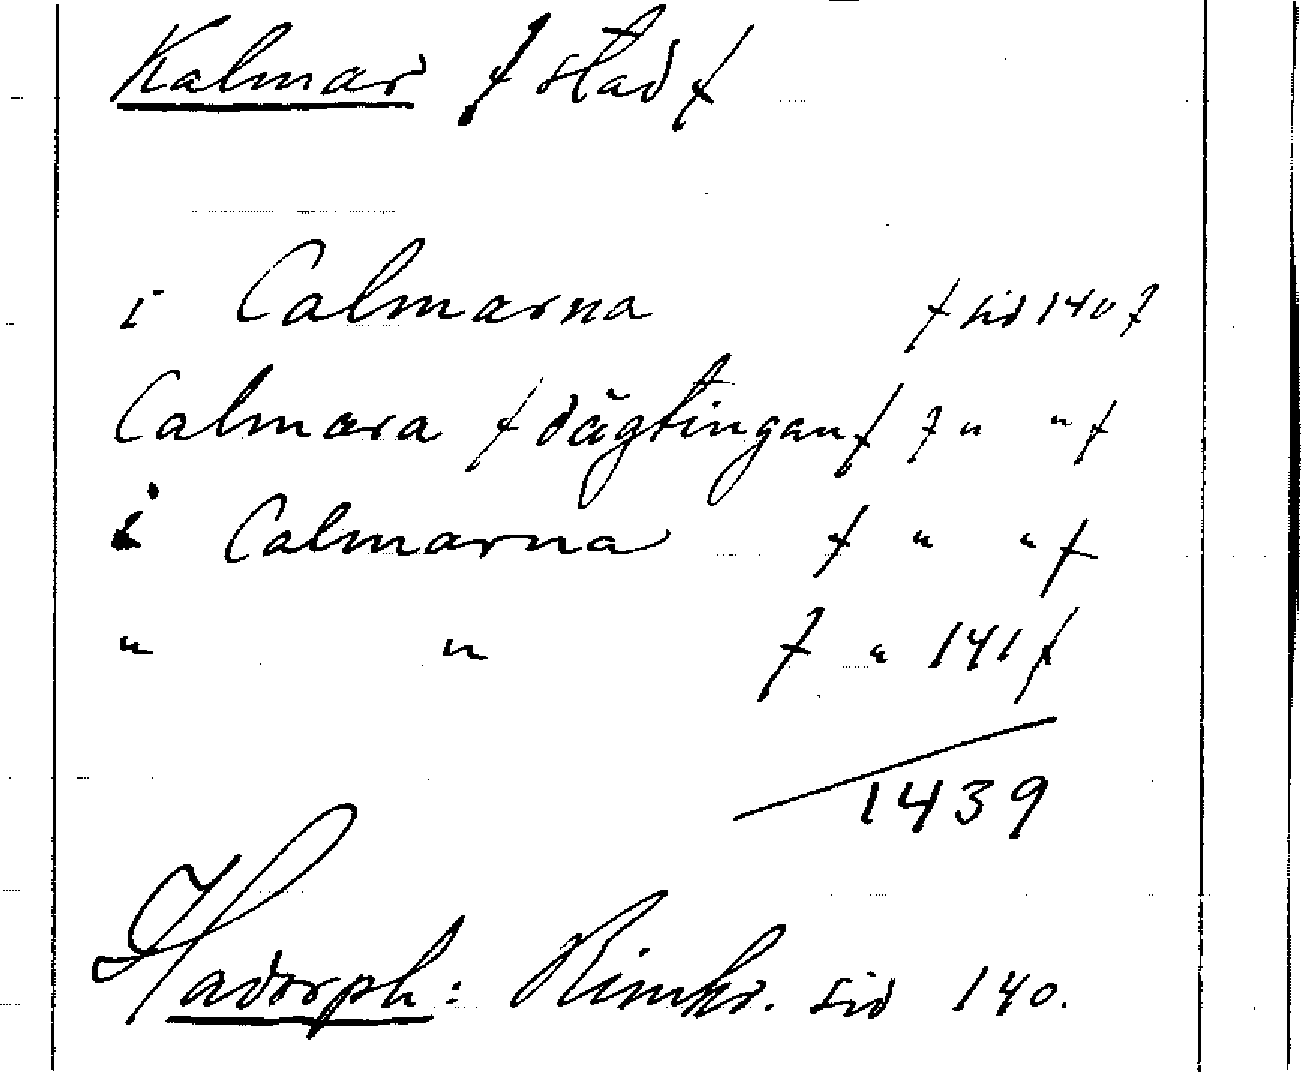 Kalmar / stad /
i Calmarna / sid 140 /
Calmara / dågtingan / / " " /
i Calmarna / " " /
" " / " 141 /
1439
Hadorph: Rimkr. sid 140.